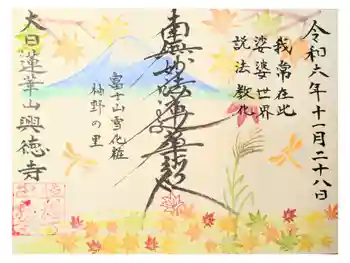 令和六年十一月二十八日
我常在此
娑婆世界
説法教化
南無妙法蓮華経
富士山雪化粧
柚野の里
大日蓮華山興徳寺